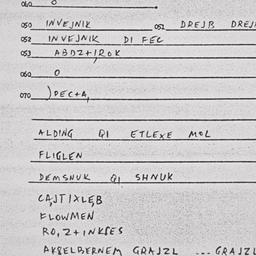 060 O
050 INVEJNIK 051 DREJB DREJ
052 INVEJNIK DI FEC
053 ABDZ+IROK
060 O
070 )DEC+A,
ALDING QI ETLEXE MOL
FLIGLEN
DEMSHUK QI SHNUK
FLOWMEN
RO,Z+INKSES
AKSELBERNEM GRAJZL ...GRAJZL